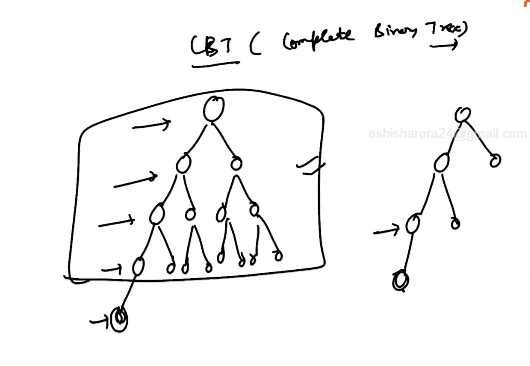 CBT ( Complete Binary Tree)
ashisharora24@gmail.com